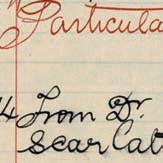 Particula
4 From Dr.
Scar Cat